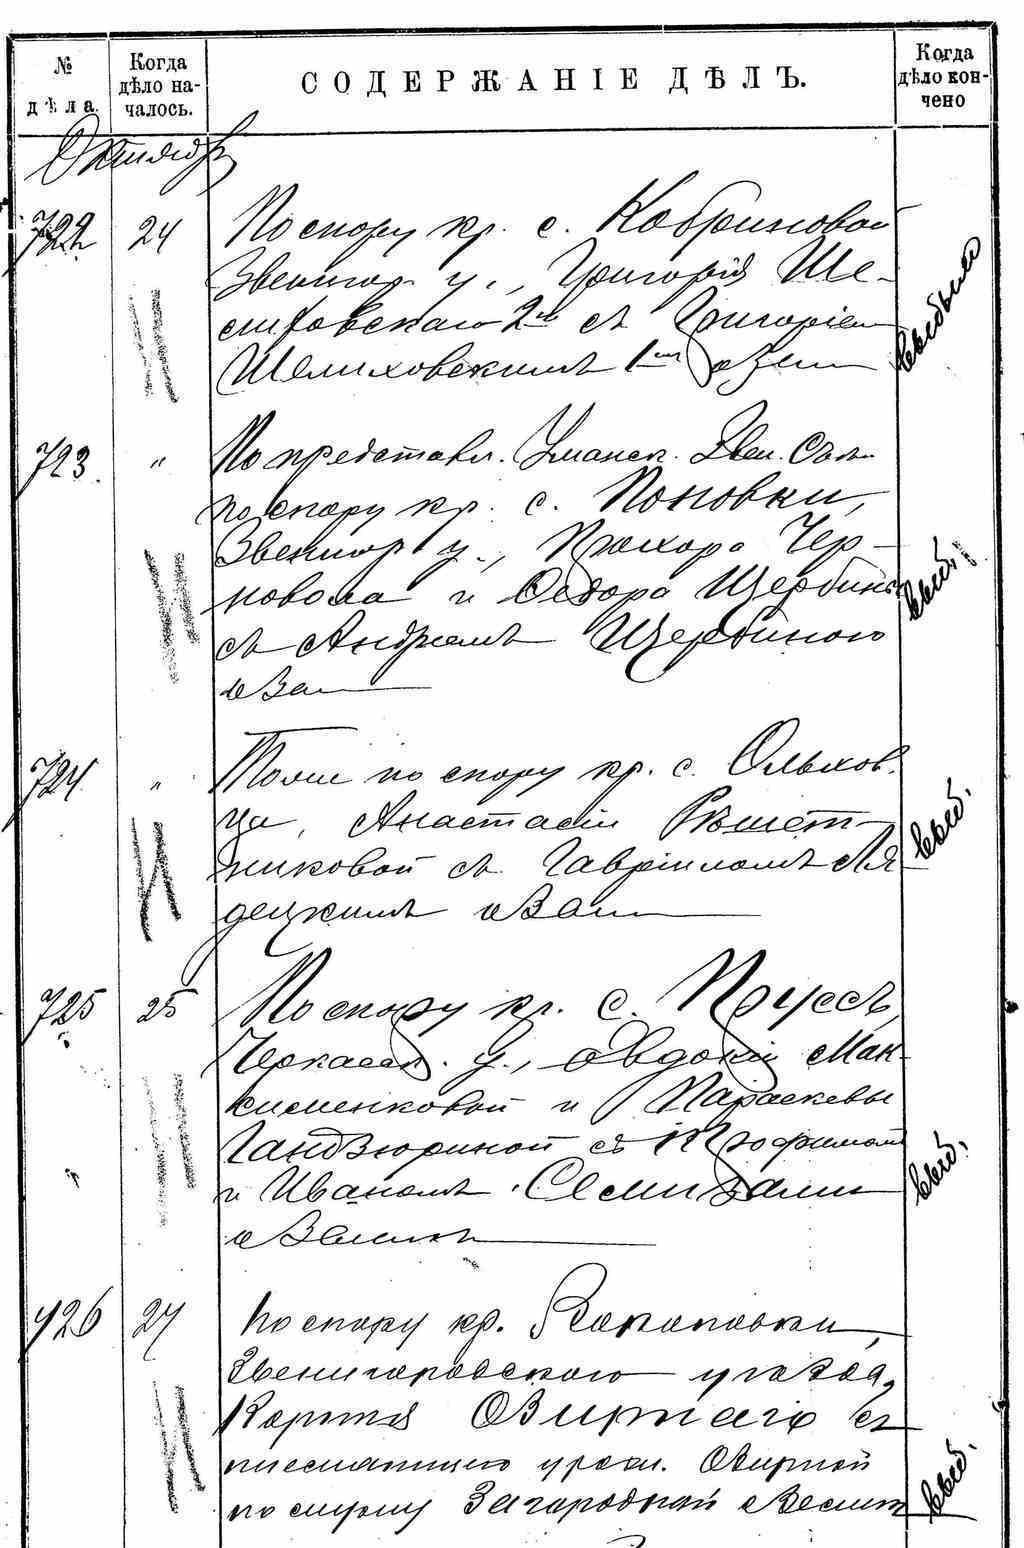 № дѣла.
Когда дѣло началось.
СОДЕРЖАНІЕ ДѢЛЪ.
Когда дѣло кончено
Октябрь
722 24 По спору кр. с. Кобриновой
Звенигор. у., Григорія Ше-
лиховскаго 2го съ Григоріем
Шелиховскимъ 1мъ
выбыло
723 „ По представл. Уманск. Звен. Съ
по спору кр. с. Поповки,
Звенигор у., Прохора Чер-
новола и Ѳедора Щербины
съ Андреемъ Щербиною
о зем
выб.
724 „ Тоже по спору кр. с. Ольхов-
ца, Анастасіи Рѣшет-
никовой съ Гавріиломъ Ля-
децкимъ о зем
выб.
725 25 По спору кр. с. Пруссъ,
Черкасск. у., Евдокіи Мак-
сименковой и Параскевы
Гандзюриной съ Трофимомъ
и Иваномъ Семизами
о землѣ
выб.
726 27 По спору кр.
Звенигородского уѣзда,
Озирнаго съ
Озирной
по спору Загородной
выб.